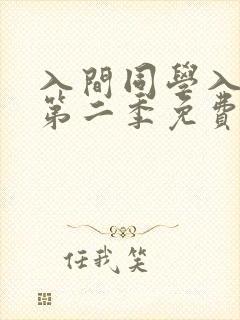 入間同學入
第二季免費
任我笑